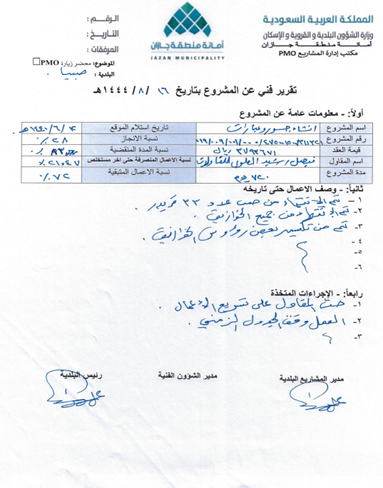 المملكة العربية السعودية
وزارة الشؤون البلدية و القروية و الإسكان
أمانة منطقة جازان
مكتب إدارة المشاريع PMO
أمانة منطقة جازان
JAZAN MUNICIPALITY
الرقم :
التاريخ :
المرفقات :
الموضوع: محضر زيارة PMO
البلدية : صبيا
تقرير فني عن المشروع بتاريخ ١٦ / ٨ / ١٤٤٤ هـ
أولاً: - معلومات عامة عن المشروع
اسم المشروع انشاء جسور وعبارات تاريخ استلام الموقع
رقم المشروع نسبة الانجاز ٠/٠ ٢٨
قيمة العقد ريال نسبة المدة المنقضية
اسم المقاول نسبة الاعمال المنصرفة حتى اخر مستخلص
مدة المشروع ٧٢٠ يوم نسبة الأعمال المتبقية ٠/٠ ٧٢
ثانياً: - وصف الاعمال حتى تاريخه
١- تم الانتهاء من صب عدد ٣٣
٢- تم الانتهاء من جميع الخوازيق .
٣- تم من تكسير بعض رؤوس الخوازيق
٤-
٥-
٦-
رابعاً: - الإجراءات المتخذة
١- حث المقاول على تسريع الأعمال .
٢- العمل وفق الجدول الزمني .
٣-
مدير المشاريع البلدية
مدير الشؤون الفنية
رئيس البلدية